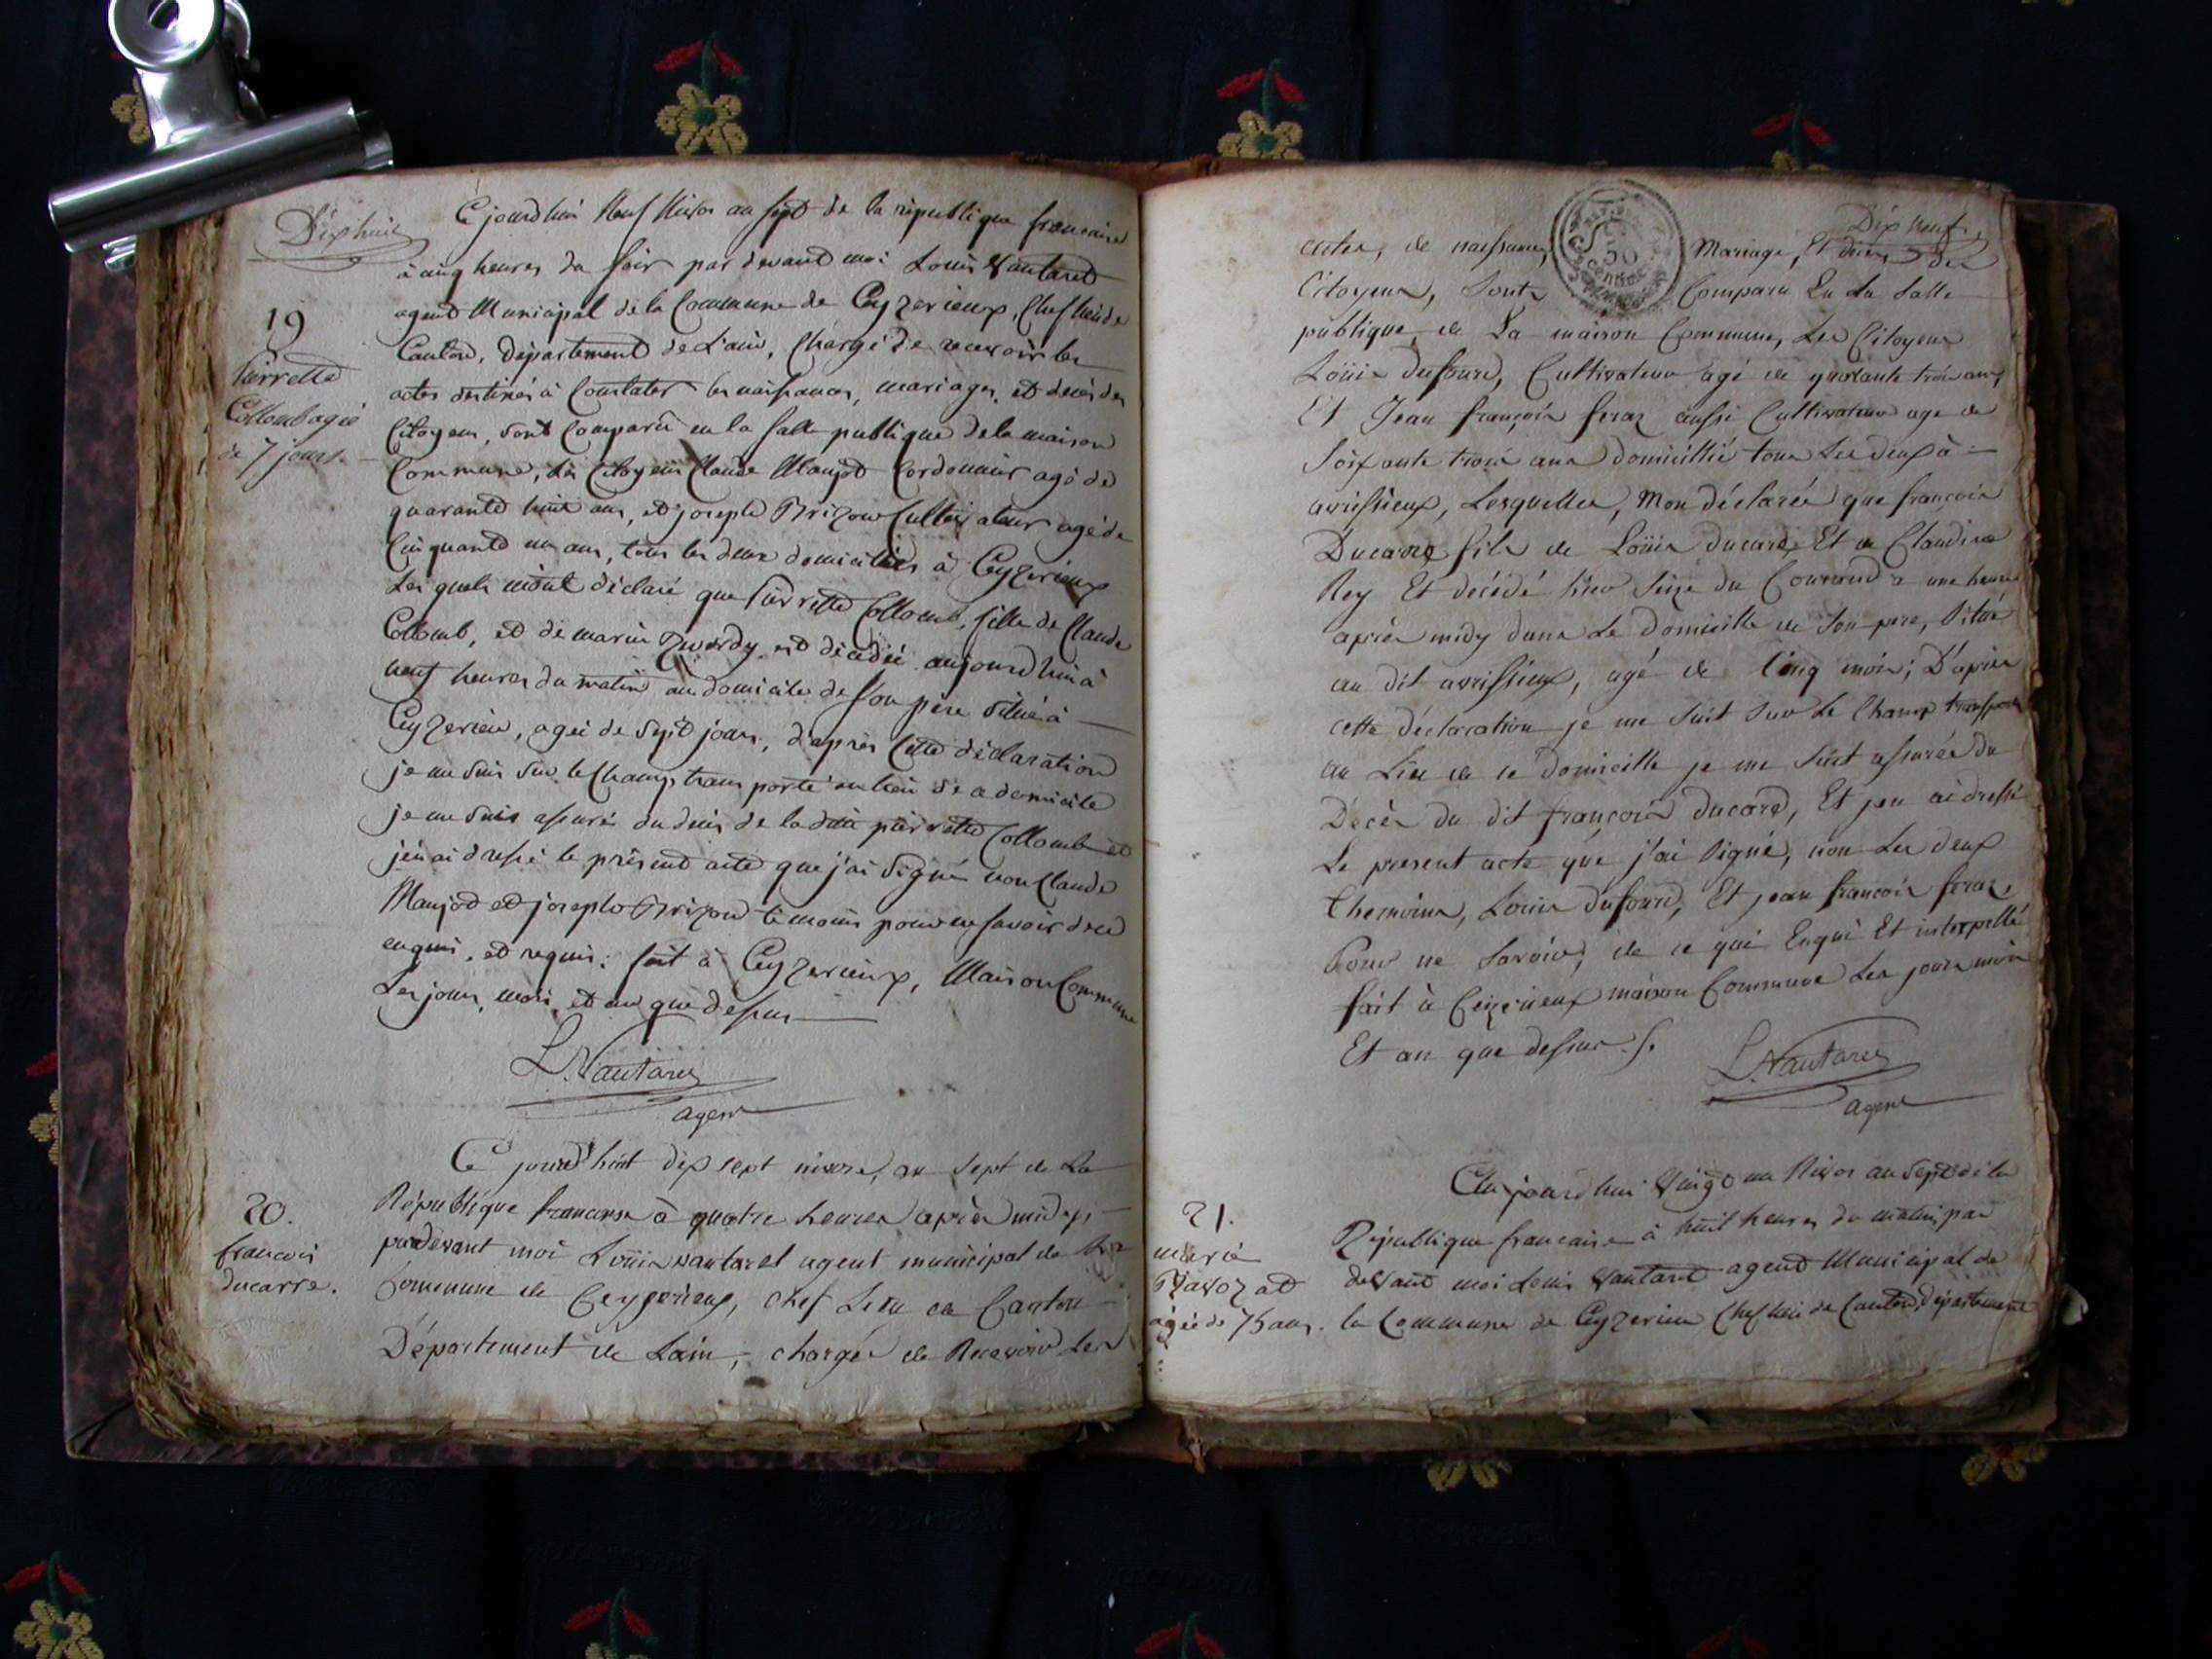 Dixhuit
Cejourdhui Neuf Nivos an sept de la republique francaise
à cinq heures du soir par devant moi Louis Vautaret
agent Municipal de la Commune de Ceyzerieux, Chef lieu de
Canton, département de L'ain, Chargé de recevoir les
actes destinés à Constater les naissances, mariages, et deces des
Citoyens, sont Comparû en la salle publique de la maison
Commune, les Citoyens Claude Maujod Cordonnier agé de
quarante huit ans, et joseph Brizou Cultivateur agé de
Cinquante un ans, tous les deux domiciliés à Ceyzerieux
Lesquels m'ont déclaré que Pierrette Collomb, fille de Claude
Collomb, et de marie est décédée aujourdhui à
neuf heures du matin au domicile de son père situé à
Ceyzerieu, agée de sept jours, d'après Cette déclaration
je me suis sur le Champ transporté au lieu de ce domicile
je me suis assuré du décès de la dite pierrette Collomb et
j'en ai dressé le présent acte que j'ai signé non Claude
Maujod et joseph Brizou témoins pour ne savoir de ce
enquis, et requis; fait à Ceyzerieux, Maison Commune
Les jour, mois, et an que dessus
L. Vautaret
agent
19
Pierrette
Collomb agée
de 7 jours.
Ce jourd'huit dix sept nivose, an sept de La
République francaise à quatre heures après midy,
pardevant moi Louis vautaret agent municipal de la
Commune de Ceyzerieux, chef Lieu de Canton
Département de Lain, chargé de Recevoir Les
20.
francois
ducarre.
Dix neuf.
actes, de naissance, Mariage, Et décès des
Citoyens, Sont Comparu En La Salle
publique de La maison Commune, Les Citoyens
Louis dufourd, Cultivateur agé de quarante trois ans,
Et Jean françois feraz aussi Cultivateur age de
Soixante trois ans domicillié tous Les deux à
avrissieux, Lesquelles, Mon déclarée que françois
Ducarre fils de Louis ducare Et de Claudine
Rey Et décédé hier Seize du Courrand a une heure
après midy dans Le domicille de Son pere, Situé
au dit avrissieux, agé de Cinq mois; D'après
cette déclaration je me Suit Sur Le Champ transporté
au Lieu de ce domicille je me Suit assurée du
Décès du dit françois ducare, Et jen ai dressé
Le present acte que j'ai Signé, non Les deux
themoins, Louis dufourd, Et jean francois feraz,
Pour ne Savoir, de ce qui Enqui Et interpellé
fait à Ceizerieux maison Commune Les jours mois
Et an que dessus.
L. Vautaret
agent
Cejourdhui Vingt un Nivos an Sept de la
République francaise à huit heures du matin par
devant moi Louis Vautaret agent Municipal de
la Commune de Ceyzerieu Chef lieu de Canton, département
21.
marie
Ravozat
agée de 75 ans.
50